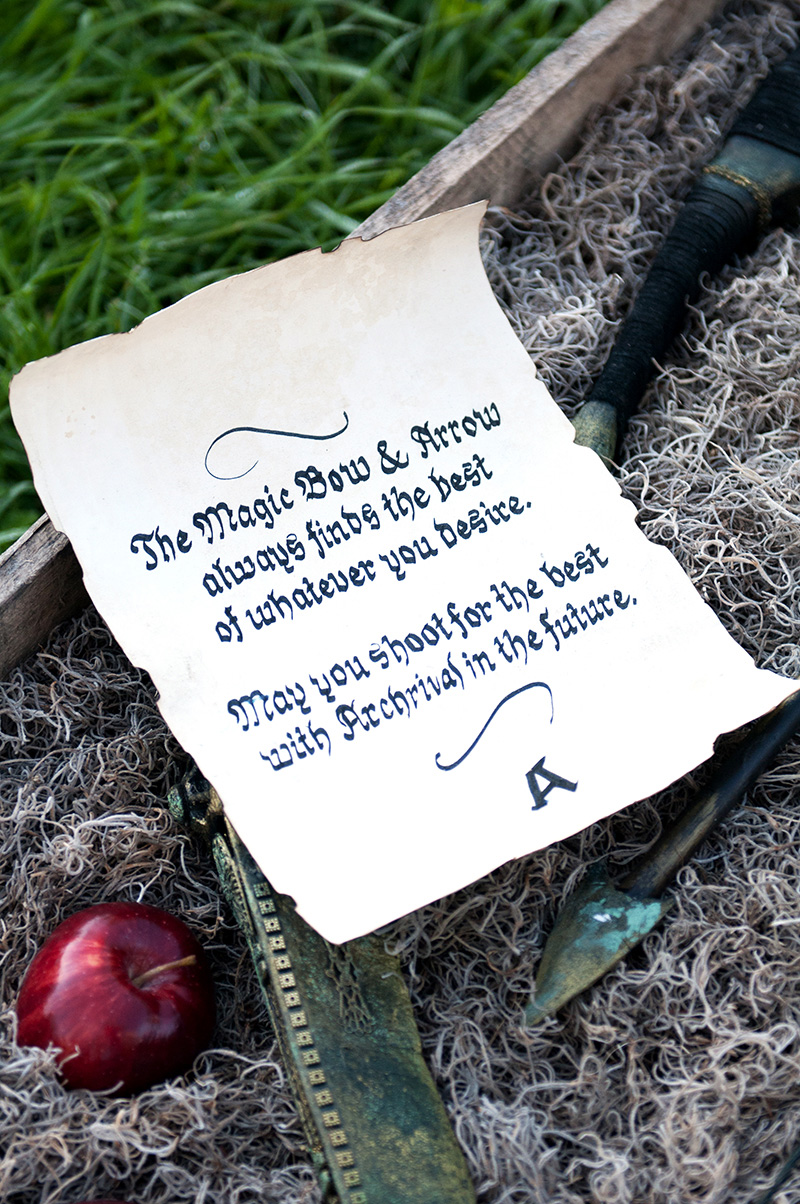 The Magic Bow & Arrow
always finds the best
of whatever you desire.
May you shoot for the best
with Archrival in the future.
A